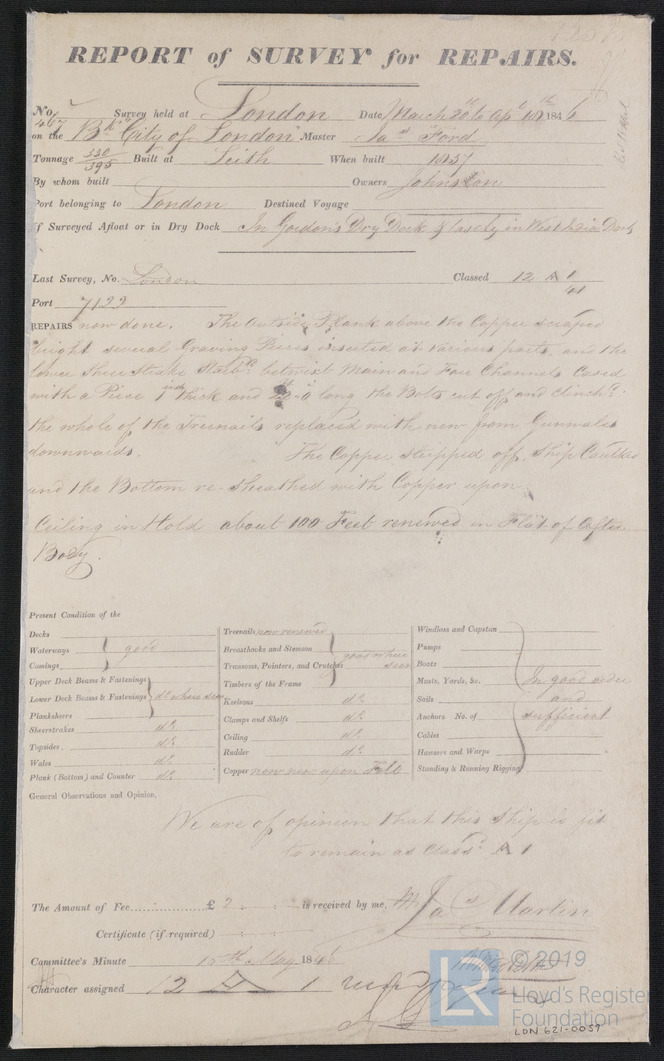 REPORT of SURVEY for REPAIRS.
No. 467 Survey held at London Date March 20th to Apl 18th 1846
on the Bk "City of London" Master Jas Ford
Tonnage 330/395 Built at Leith When built 1837
By whom built Owners Johnston
Port belonging to London Destined Voyage
If Surveyed Afloat or in Dry Dock In Gordon's Dry Dock & lastly in West India Dock
Last Survey, No. London Classed 12 A 1
41
Port 7133
REPAIRS now done. The Outside Plank above the Copper scraped
bright several Graving Pieces inserted at various parts, and the
lower Sheer Strake Starbd betwixt Main and Fore Channels Cased
with a Piece 1 inch thick and long the Bolts cut off and clinchd:
the whole of the Treenails replaced with new from Gunwales
downwards. The Copper stripped off, Ship Caulked
and the Bottom re-sheathed with Copper upon
Ceiling in Hold about 100 Feet renewed in Flat of After
Body.
Present Condition of the
Decks
Waterways good
Comings
Upper Deck Beams & Fastenings
Lower Deck Beams & Fastenings do where seen
Planksheers
Sheerstrakes do
Topsides do
Wales do
Plank (Bottom) and Counter do
Treenails now renewed
Breasthooks and Stemson
Transoms, Pointers, and Crutches good where seen
Timbers of the Frame
Keelsons do
Clamps and Shelfs do
Ceiling do
Rudder do
Copper now new upon Felt
Windlass and Capstan
Pumps
Boats
Masts, Yards, &c. In good order
Sails and
Anchors No. of sufficient
Cables
Hawsers and Warps
Standing & Running Rigging
General Observations and Opinion,
We are of opinion that this Ship is fit
to remain as Classd A 1
The Amount of Fee £ 2 is received by me, Jas Martin
Certificate (if required)
Committee's Minute 15th May 1846
Character assigned 12 A 1
LR © 2019
Lloyd's Register
Foundation
LDN 621-0057